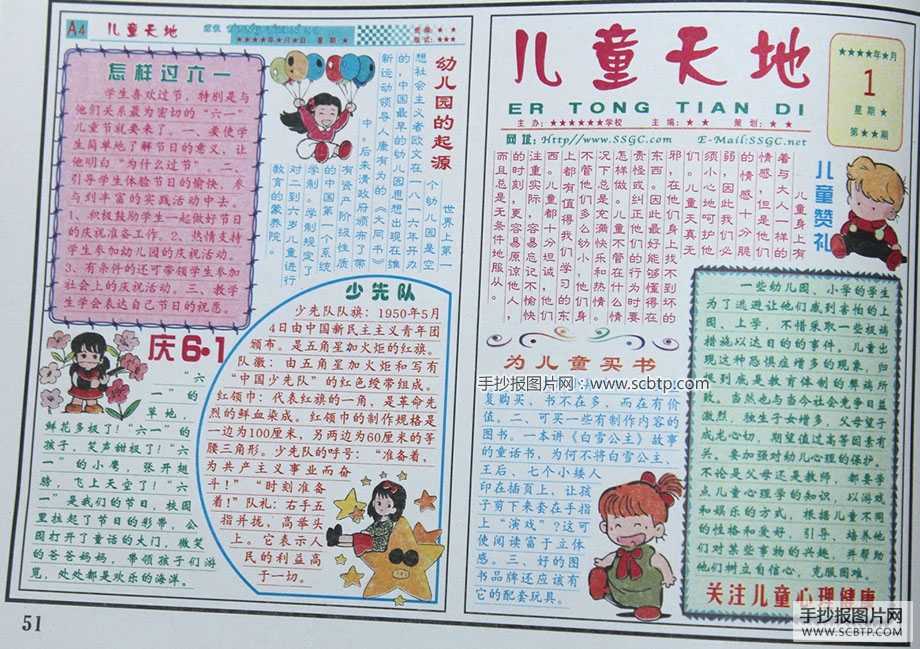 A4 儿童天地
★★★★年★月★日 星期★
怎样过六一
学生喜欢过节，特别是与
他们关系最为密切的“六一”
儿童节就要来了。一、要使学
生简单地了解节日的意义、让
他明白“为什么过节” 二、
引导学生体验节日的愉快，参
与到丰富的实践活动中去。
1、积极鼓励学生一起做好节日
的庆祝准备工作。2、热情支持
学生参加幼儿园的庆祝活动。
3、有条件的还可带领学生参加
社会上的庆祝活动。三、教学
生学会表达自己节日的祝愿。
幼儿园的起源
世界上第一
个幼儿园是空
想社会主义者欧文在一八一六年开办
的，中国最早的幼儿园思想出现在维
新运动领导人康有为的《大同书》
中。后来清政府颁布了带
有资产阶级性质
的中国第一个系统
学制。学制规定了
对三到六岁儿童进行
教育的蒙养院。
庆6·1
“六
一”的
草地，
鲜花多极了！“六一”的
孩子，笑声甜极了！“六
一”的小鹰，张开翅
膀，飞上天空了！“六
一”是我们的节日，校园
里拉起了节日的彩带，公
园打开了童话的大门，微笑
的爸爸妈妈，带领孩子们游
览，处处都是欢乐的海洋。
少先队
少先队队旗：1950年5月
4日由中国新民主主义青年团
颁布。是五角星加火炬的红旗。
队徽：由五角星加火炬和写有
“中国少先队”的红色绶带组成。
红领巾：代表红旗的一角，是革命先
烈的鲜血染成。红领巾的制作规格是
一边为100厘米，另两边为60厘米的等
腰三角形。少先队的呼号：“准备着，
为共产主义事业而奋
斗！”“时刻准备
着！”队礼：右手五
指并拢，高举头
上。它表示人
民的利益高
于一切。
51
儿童天地
ER TONG TIAN DI
主办：★★★★★★学校 主编：★★ 策划：★★
网址：Http://www.SSGC.com E-Mail:SSGC.net
★★★★年★月
1
星期★
第★★期
儿童赞礼
儿童身上有
着与大人一样的
情感，但是他们
的情感十分脆
弱，因此我们必
须小心地呵护他
们。儿童天真无
邪，在他们身上找不到坏的
东西。因此最好能够懂得在
怎样做。儿童不管在什么情
况下总是充满快乐和热情。
不管他们多么幼小，他们身
上都有值得我们学习的东
西。儿童都十分坦诚，他们
注重实际，容易忘记不愉快
的时刻，更容易原谅他人，
而且总是无条件地服从。
为儿童买书
复购买，书不在多，而在有价
值。二、可买一些有制作内容的
图书。一本讲《白雪公主》故事
的童话书，为何不将白雪公主、
王后、七个小矮人
印在插页上，让孩
子剪下来套在手指
上“演戏”？这可
使阅读富于立体
感。三、好的图
书品牌还应该有
它的配套玩具。
一些幼儿园、小学的学生
为了逃避让他们感到害怕的上
园、上学，不惜采取一些极端
措施以达目的的事件。儿童出
现这种恐惧症增多的现象，归
根到底是教育体制的弊端所
致。当然也与当今社会竞争日益
激烈，独生子女增多，父母望子
成龙心切，期望值过高等因素有
关。要加强对幼儿心理的保护。
不论是父母还是教师，都要学
点儿童心理学的知识，以游戏
和娱乐的方式，根据儿童不同
的性格和爱好，引导、培养他
们对某些事物的兴趣，并帮助
他们树立自信心，克服困难。
关注儿童心理健康
手抄报图片网：www.scbtp.com
手抄报图片网
WWW.SCBTP.COM